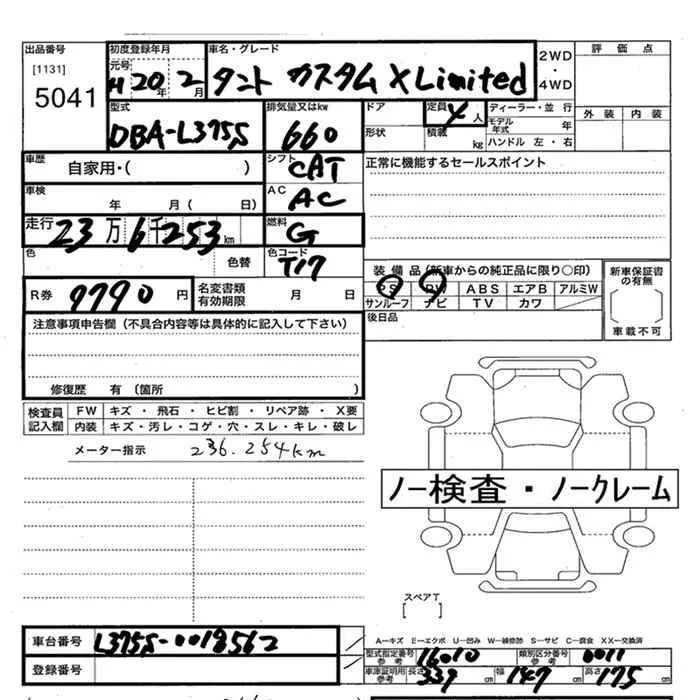 出品番号 初度登録年月 車名・グレード 2WD・4WD 評価点
[1131] 元号 H20年2月 タント カスタム X Limited
5041 型式 排気量又はkw ドア 定員 4人 ディーラー・並行 外装 内装
DBA-L375S 660 形状 積載 kg モデル年式 年 ハンドル 左・右
車歴 自家用・( ) シフト CAT 正常に機能するセールスポイント
車検 年 月( 日) AC AC
走行 23万6千253km 燃料 G
色 色替 色コード T17
装備品(新車からの純正品に限り○印) 新車保証書の有無
R券 9790円 名変書類有効期限 月 日 PS PW ABS エアB アルミW
サンルーフ ナビ TV カワ
注意事項申告欄(不具合内容等は具体的に記入して下さい) 後日品 車載不可
修復歴 有(箇所 )
検査員記入欄 FW キズ・飛石・ヒビ割・リペア跡・X要
内装 キズ・汚レ・コゲ・穴・スレ・キレ・破レ
メーター指示 236.254km
ノー検査・ノークレーム
スペアT
[ ]
車台番号 L375S-0018562 A―キズ E―エクボ U―凹み W―補修跡 S―サビ C―腐食 XX―交換済
型式指定番号 参考 16010 類別区分番号 参考 0011
登録番号 車庫証明用 参考 長さ 339cm 幅 147cm 高さ 175cm